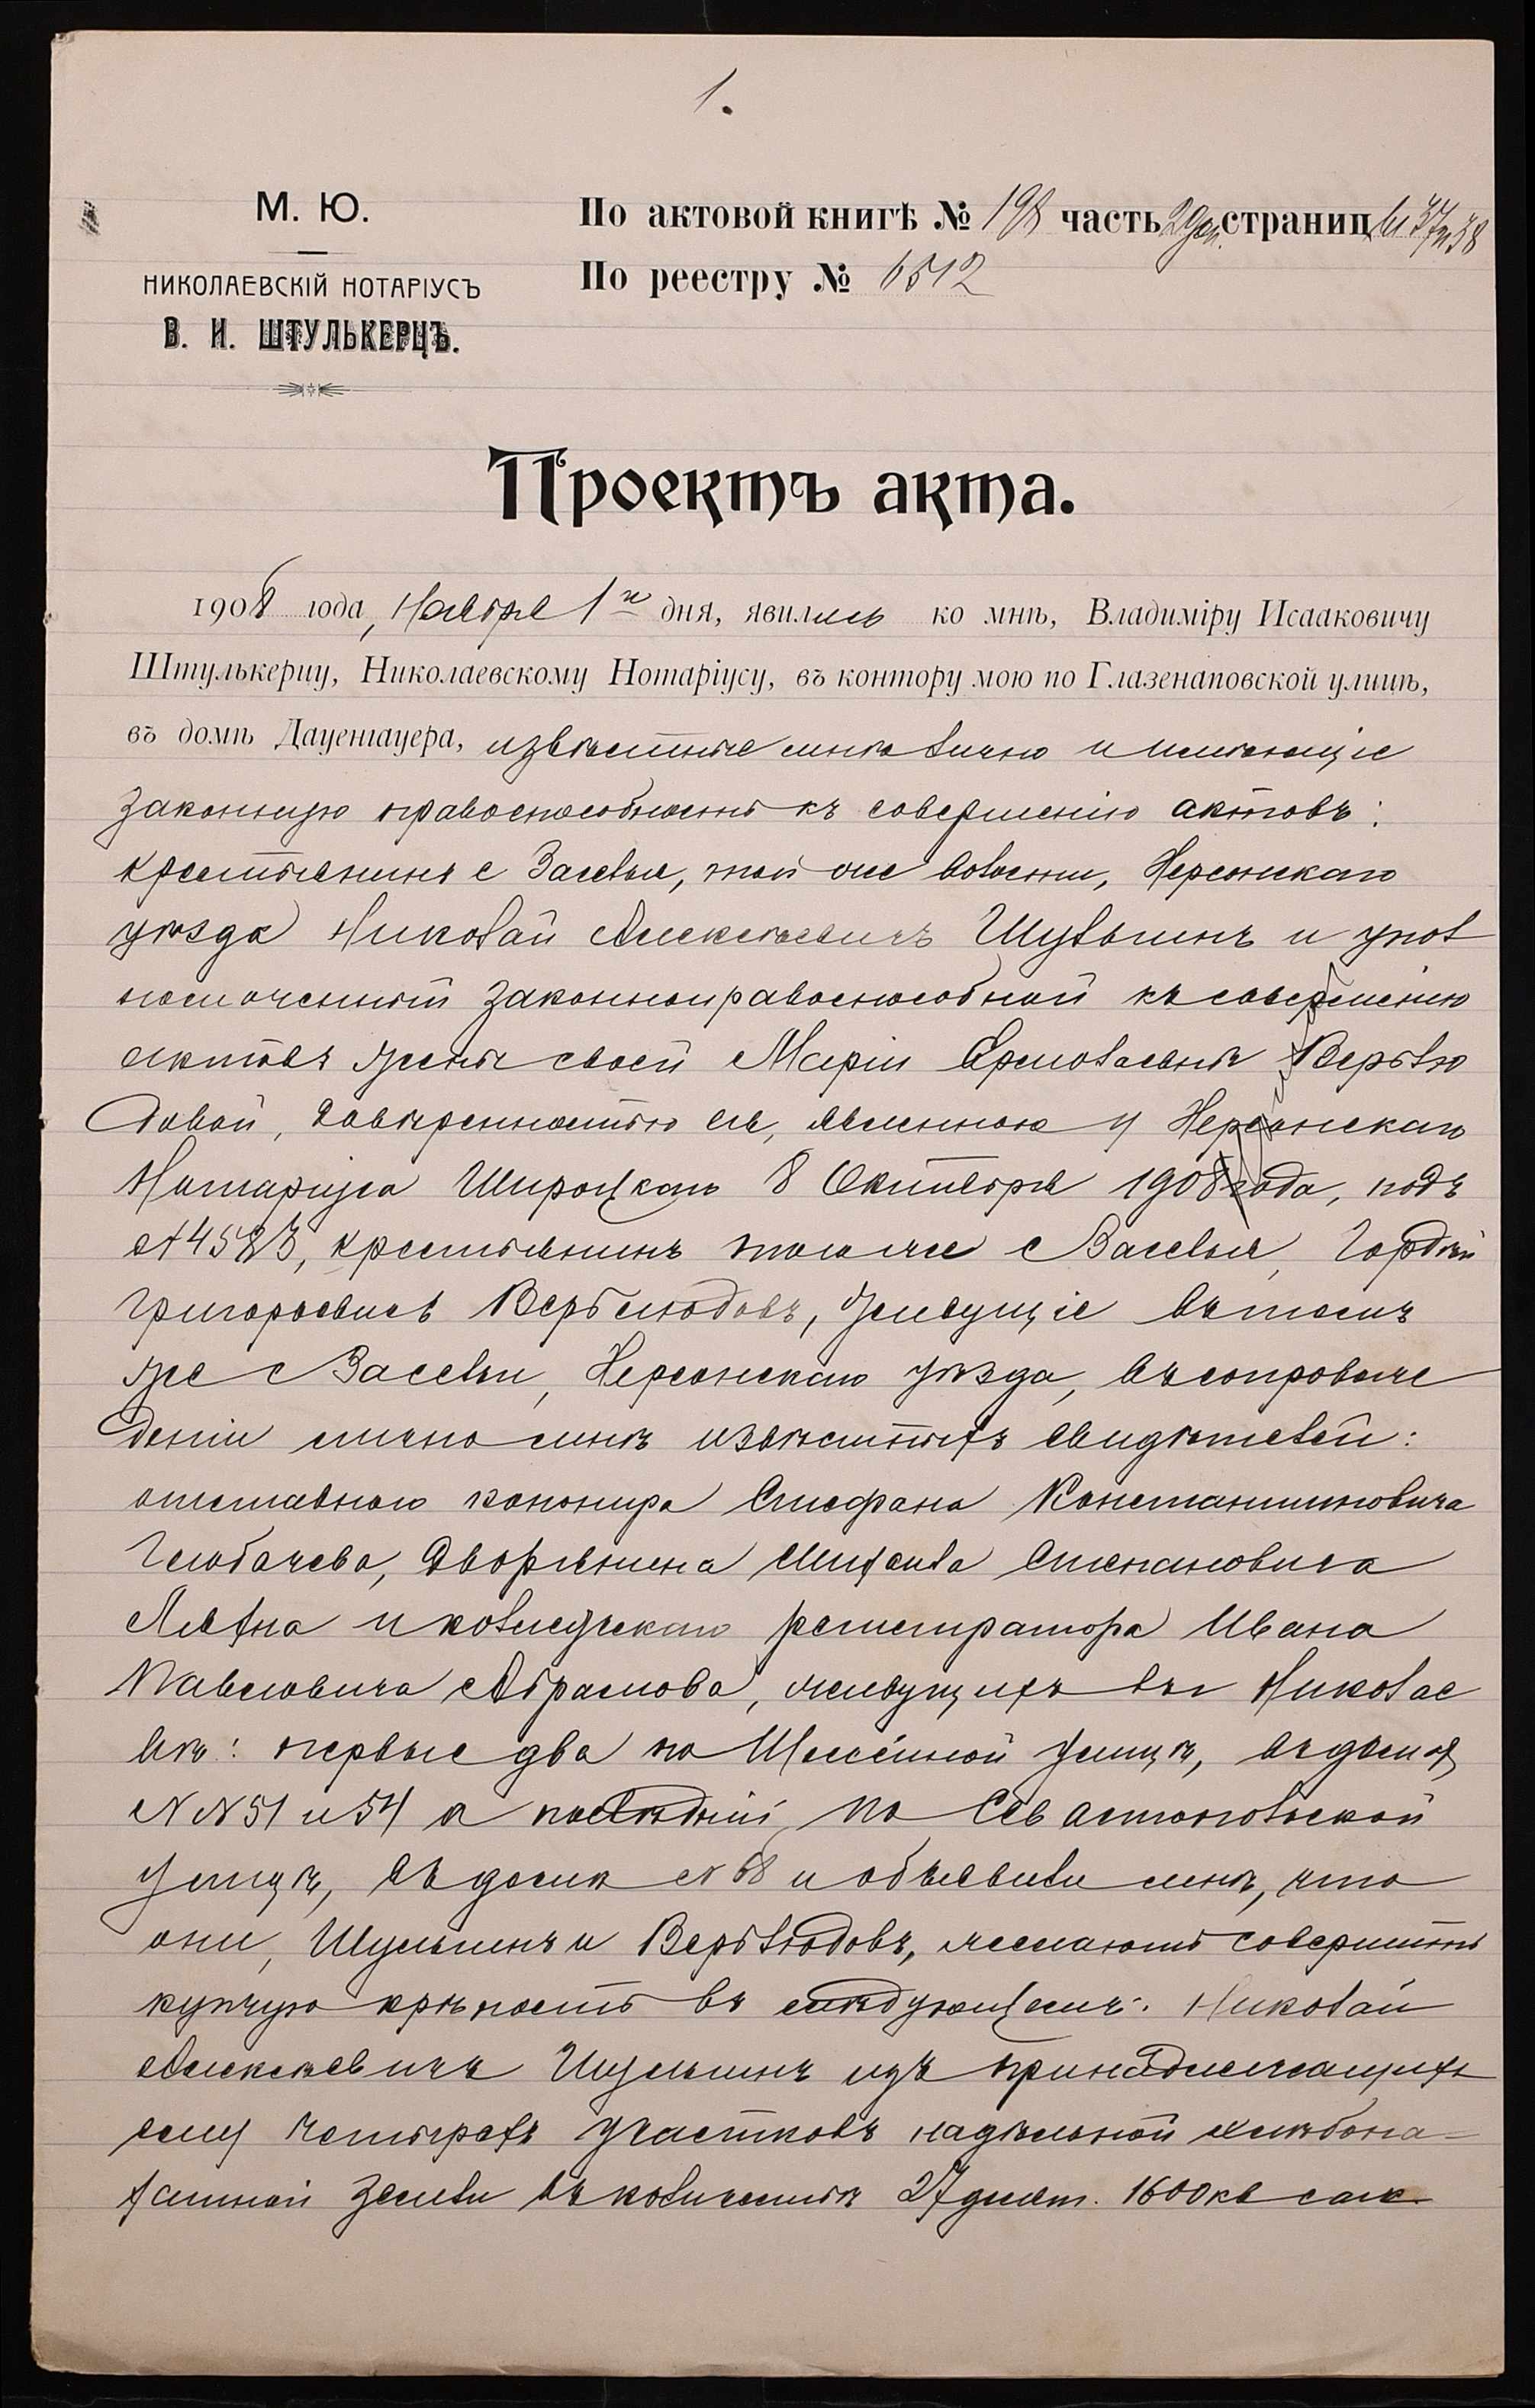 1.
М. Ю.
НИКОЛАЕВСКІЙ НОТАРІУСЪ
В. И. ШТУЛЬКЕРЦЪ.
По актовой книгѣ № 198 часть 2 страниц 37 и 38
По реестру № 6512
Проектъ акта.
1908 года, Ноября 1го дня, явились ко мнѣ, Владиміру Исааковичу
Штулькерцу, Николаевскому Нотаріусу, въ контору мою по Глазенаповской улицѣ,
въ домѣ Дауенгауера, извѣстные мнѣ лично и имѣющіе
законную правоспособность къ совершенію актовъ:
крестьянинъ с Заселья, той же волости, Херсонскаго
уѣзда Николай Алексѣевичъ Шульгинъ и упол
номоченный законноправоспособной къ совершенію
актовъ жены своей Маріи Ермолаевны Верблю
довой, довѣренностью ея, явленною у Херсонскаго
Нотаріуса Широцкаго 8 Октября 1908 года, подъ
№ 4523, крестьянинъ того же с Заселья, Гордѣй
Григорьевичъ Верблюдовъ, живущіе въ томъ
же с Засельи, Херсонскаго уѣзда, въ сопровож
деніи лично мнѣ извѣстныхъ свидѣтелей:
отставного канонира Стефана Константиновича
Голобачева, дворянина Михаила Степановича
Ляхна и коллежскаго регистратора Ивана
Павловича Абрамова, живущихъ въ Николае
вѣ: первые два по улицѣ, въ домѣ
№№ 51 и 54 а послѣдній по Севастопольской
улицѣ, въ домѣ № 68 и объявили мнѣ, что
они, Шульгинъ и Верблюдовъ, желаютъ совершить
купчую крѣпость въ слѣдующемъ: Николай
Алексѣевичъ Шульгинъ изъ принадлежащихъ
ему четырехъ участковъ надѣльной хлѣбопа-
хатной земли въ количествѣ 27 десят. 1600 кв саж